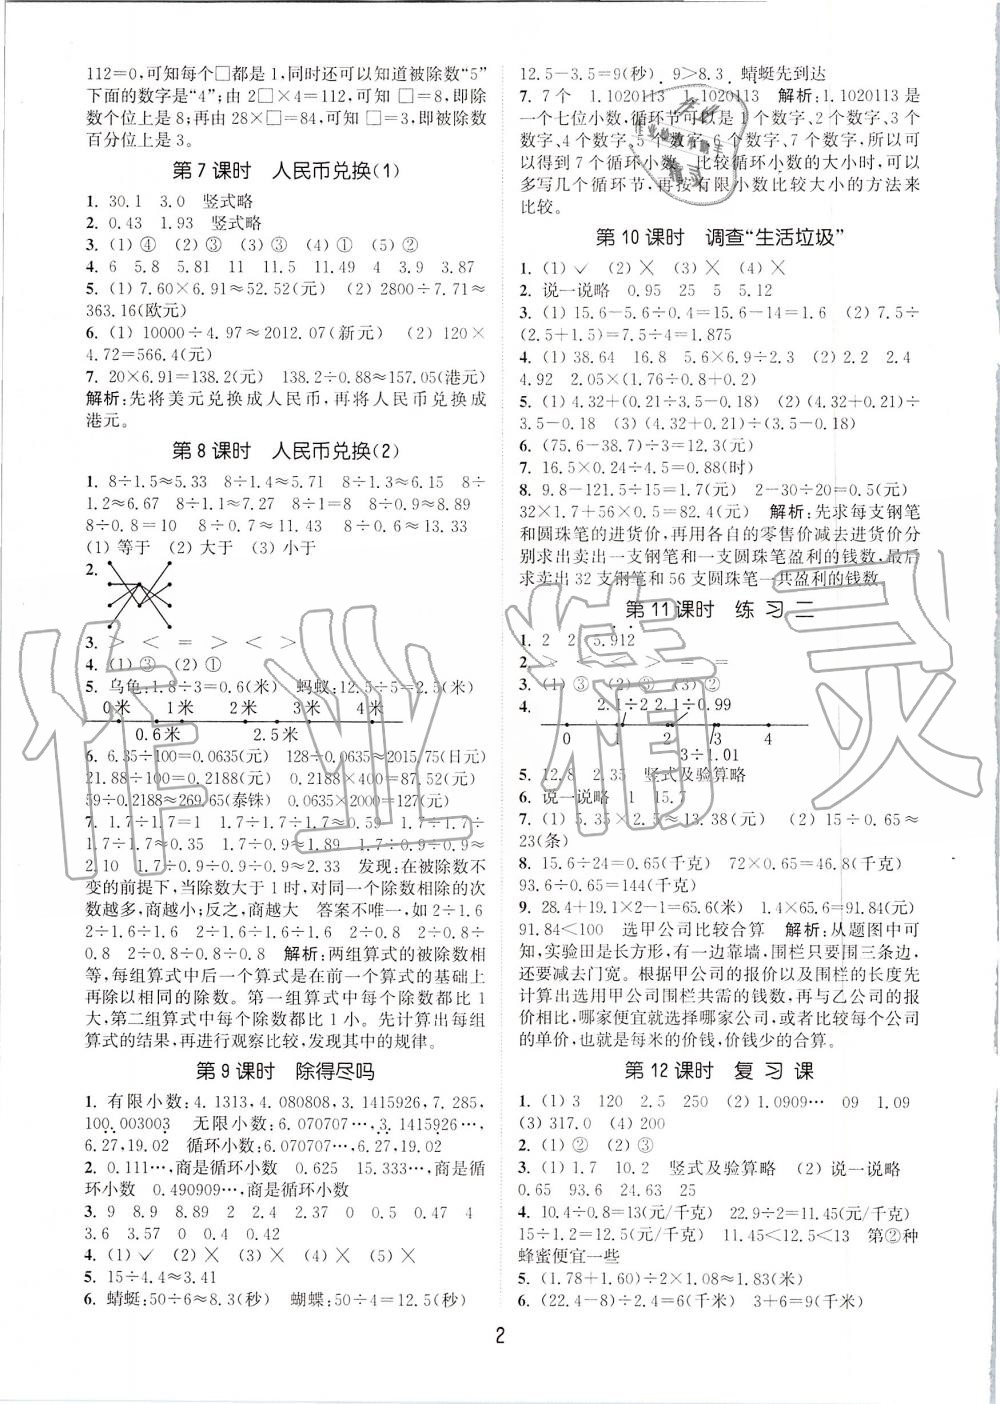 112=0,可知每个□都是1,同时还可以知道被除数“5”
下面的数字是“4”;由2□×4=112,可知□=8,即除
数个位上是8;再由28×□=84,可知□=3,即被除数
百分位上是3。
第7课时 人民币兑换(1)
1. 30.1 3.0 竖式略
2. 0.43 1.93 竖式略
3. (1) ④ (2) ③ (3) ③ (4) ②
4. 6 5.8 5.81 11 11.5 11.49 4 3.9 3.87
5. (1) 7.60×6.91≈52.52(元) (2) 2800÷7.71≈
363.16(欧元)
6. (1) 10000÷4.97≈2012.07(新元) (2) 120×
4.72=566.4(元)
7. 20×6.91=138.2(元) 138.2÷0.88≈157.05(港元)
解析:先将美元兑换成人民币,再将人民币兑换成
港元。
第8课时 人民币兑换(2)
1. 8÷1.5≈5.33 8÷1.4≈5.71 8÷1.3≈6.15 8÷
1.2≈6.67 8÷1.1≈7.27 8÷1=8 8÷0.9≈8.89
8÷0.8=10 8÷0.7≈11.43 8÷0.6≈13.33
(1) 等于 (2) 大于 (3) 小于
2.
3. > < = > < >
4. (1) ③ (2) ①
5. 乌龟:1.8÷3=0.6(米) 蚂蚁:12.5÷5=2.5(米)
0米 1米 2米 3米 4米
0.6米 2.5米
6. 6.35÷100=0.0635(元) 128÷0.0635≈2015.75(日元)
21.88÷100=0.2188(元) 0.2188×400=87.52(元)
59÷0.2188≈269.65(泰铢) 0.0635×2000=127(元)
7. 1.7÷1.7=1 1.7÷1.7÷1.7≈0.59 1.7÷1.7÷
1.7÷1.7≈0.35 1.7÷0.9≈1.89 1.7÷0.9÷0.9≈
2.10 1.7÷0.9÷0.9÷0.9≈2.33 发现:在被除数不
变的前提下,当除数大于1时,对同一个除数相除的次
数越多,商越小;反之,商越大 答案不唯一,如2÷1.6
2÷1.6÷1.6 2÷1.6÷1.6÷1.6 2÷0.8 2÷0.8÷
0.8 2÷0.8÷0.8÷0.8 解析:两组算式的被除数相
等,每组算式中后一个算式是在前一个算式的基础上
再除以相同的除数。第一组算式中每个除数都比1
大,第二组算式中每个除数都比1小。先计算出每组
算式的结果,再进行观察比较,发现其中的规律。
第9课时 除得尽吗
1. 有限小数:4.1313,4.080808,3.1415926,7.285,
100.003003 无限小数:6.070707…,3.1415926…,
6.27,19.02 循环小数:6.070707…,6.27,19.02
2. 0.111…,商是循环小数 0.625 15.333…,商是循
环小数 0.490909…,商是循环小数
3. 9 8.9 8.89 2 2.4 2.37 0 0.5 0.47 4
3.6 3.57 0 0.4 0.42
4. (1) ✓ (2) ╳ (3) ╳ (4) ╳
5. 15÷4.4≈3.41
6. 蜻蜓:50÷6≈8.3(秒) 蝴蝶:50÷4=12.5(秒)
12.5-3.5=9(秒) 9>8.3 蜻蜓先到达
7. 7个 1.1020113 1.1020113 解析:1.1020113是
一个七位小数,循环节可以是1个数字、2个数字、3个
数字、4个数字、5个数字、6个数字、7个数字,所以可
以得到7个循环小数。比较循环小数的大小时,可以
多写几个循环节,再按有限小数比较大小的方法来
比较。
第10课时 调查“生活垃圾”
1. (1) ✓ (2) ╳ (3) ╳ (4) ╳
2. 说一说略 0.95 25 5 5.12
3. (1) 15.6-5.6÷0.4=15.6-14=1.6 (2) 7.5÷
(2.5+1.5)=7.5÷4=1.875
4. (1) 38.64 16.8 5.6×6.9÷2.3 (2) 2.2 2.4
4.92 2.05×(1.76÷0.8+0.2)
5. (1) 4.32+(0.21÷3.5-0.18) (2) (4.32+0.21)÷
3.5-0.18 (3) (4.32+0.21)÷(3.5-0.18)
6. (75.6-38.7)÷3=12.3(元)
7. 16.5×0.24÷4.5=0.88(时)
8. 9.8-121.5÷15=1.7(元) 2-30÷20=0.5(元)
32×1.7+56×0.5=82.4(元) 解析:先求每支钢笔
和圆珠笔的进货价,再用各自的零售价减去进货价分
别求出卖出一支钢笔和一支圆珠笔盈利的钱数,最后
求卖出32支钢笔和56支圆珠笔一共盈利的钱数。
第11课时 练习二
1. 2 2 5.912
2. > < < = = =
3. (1) ③ (2) ③ (3) ②
4. 2.1÷2 2.1÷0.99
0 1 2 3 4
3÷1.01
5. 12.8 2.35 竖式及验算略
6. 说一说略 1 15.7
7. (1) 5.35×2.5≈13.38(元) (2) 15÷0.65≈
23(条)
8. 15.6÷24=0.65(千克) 72×0.65=46.8(千克)
93.6÷0.65=144(千克)
9. 28.4+19.1×2-1=65.6(米) 1.4×65.6=91.84(元)
91.84<100 选甲公司比较合算 解析:从题图中可
知,实验田是长方形,有一边靠墙,围栏只要围三条边,
还要减去门宽。根据甲公司的报价以及围栏的长度先
计算出选用甲公司围栏共需的钱数,再与乙公司的报
价相比,哪家便宜就选择哪家公司,或者比较每个公司
的单价,也就是每米的价钱,价钱少的合算。
第12课时 复习课
1. (1) 3 120 2.5 250 (2) 1.0909… 09 1.09
(3) 317.0 (4) 200
2. (1) ① (2) ③
3. (1) 1.7 10.2 竖式及验算略 (2) 说一说略
0.65 93.6 24.63 25
4. 10.4÷0.8=13(元/千克) 22.9÷2=11.45(元/千克)
15÷1.2=12.5(元/千克) 11.45<12.5<13 第②种
蜂蜜便宜一些
5. (1.78+1.60)÷2×1.08≈1.83(米)
6. (22.4-8)÷2.4=6(千米) 3+6=9(千米)
2
作业精灵